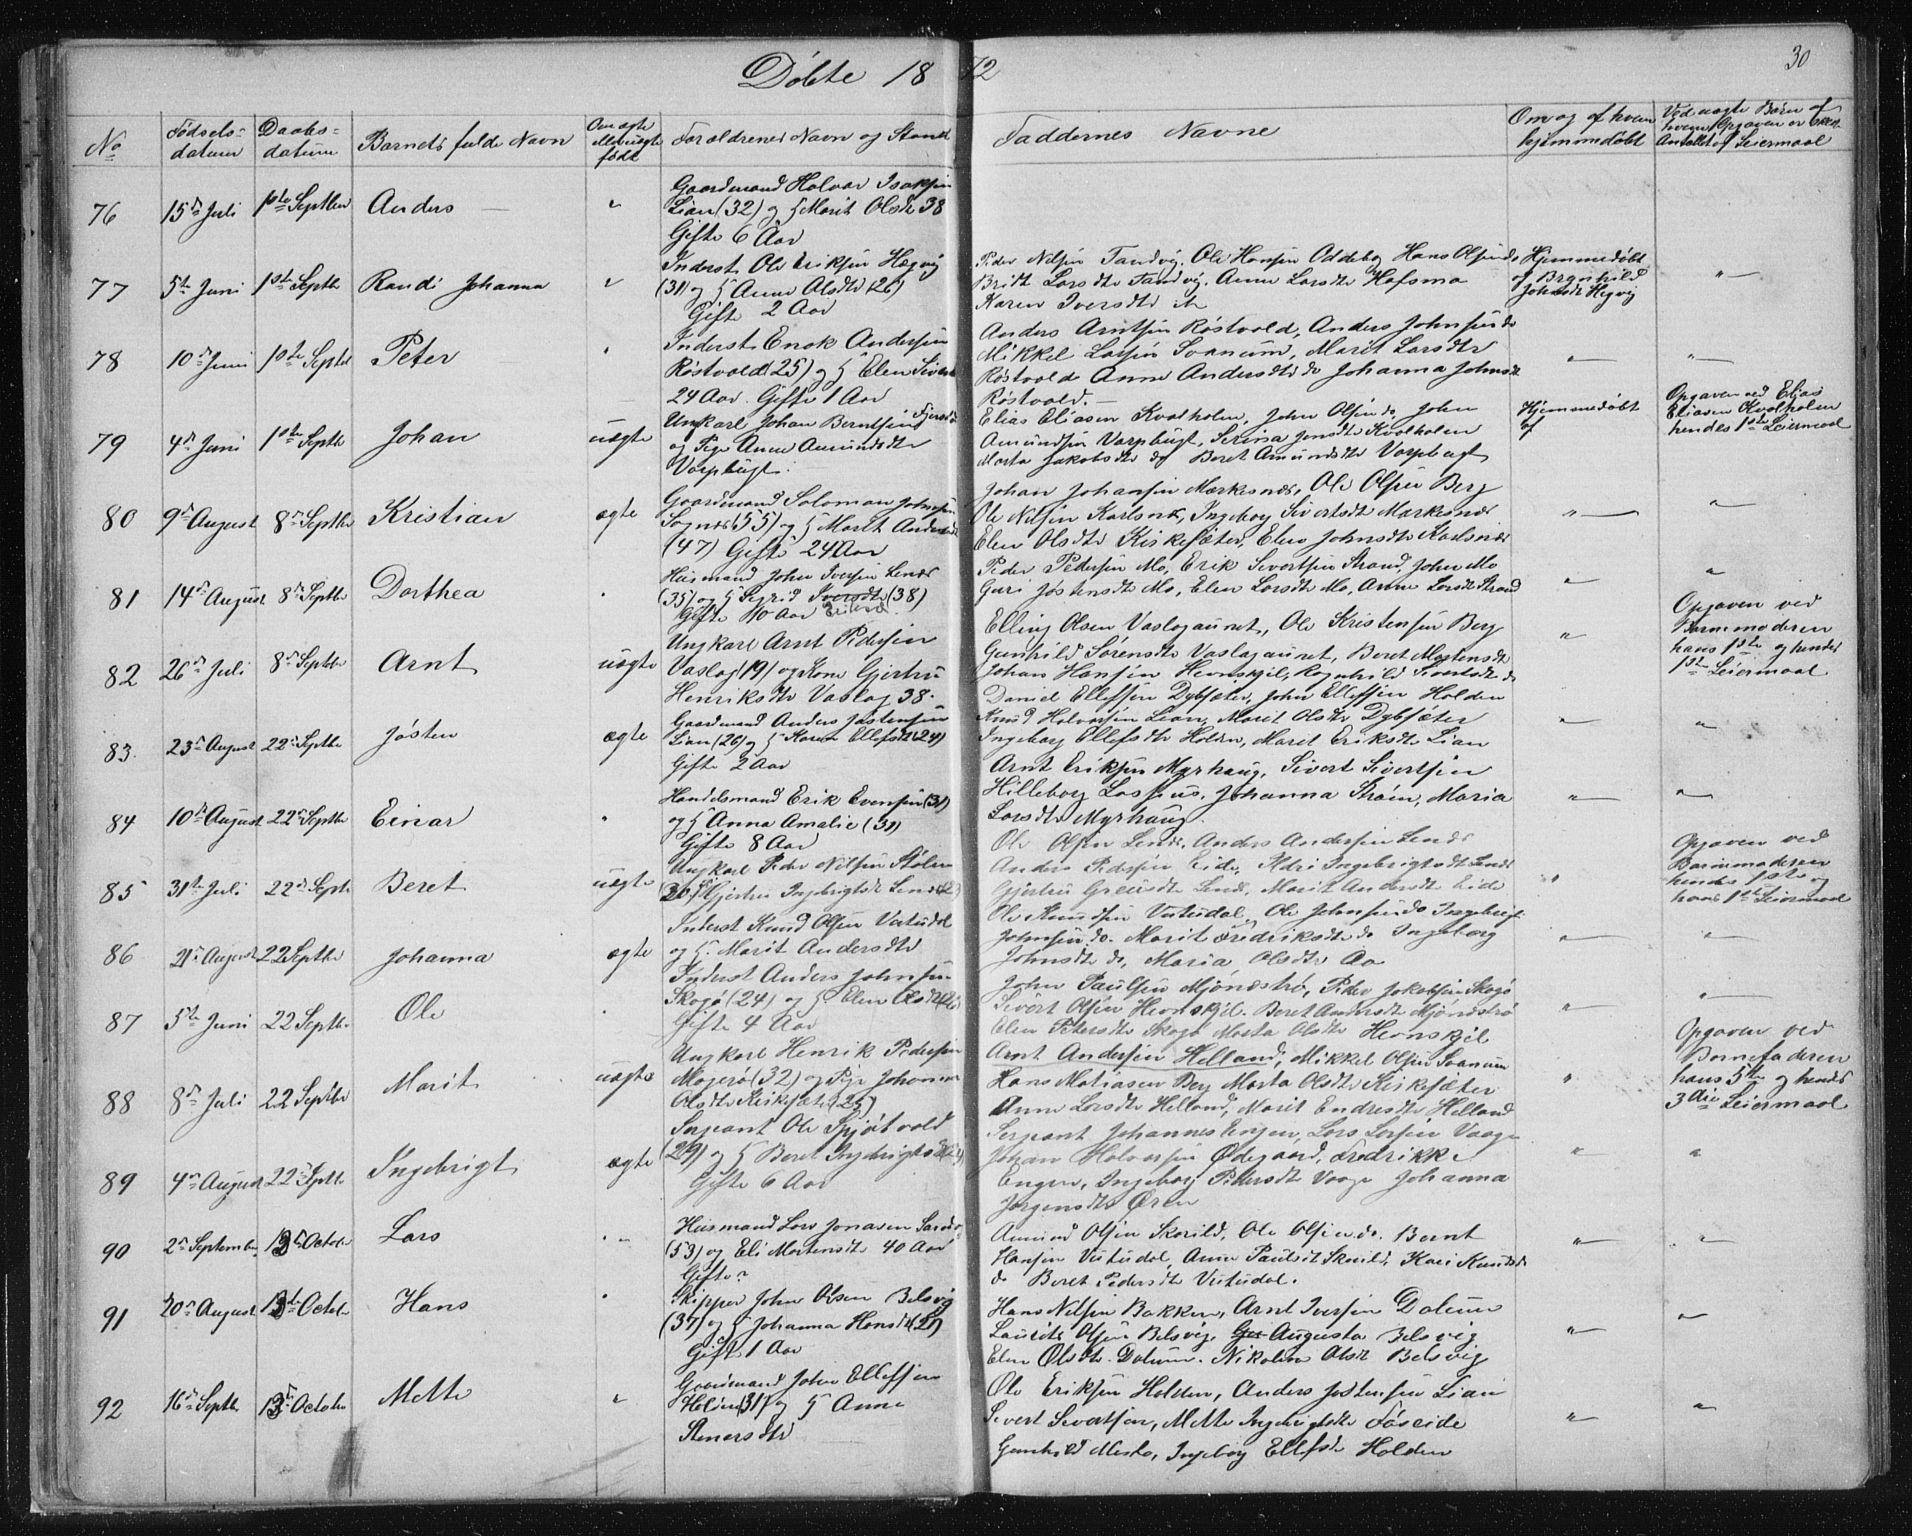 Döbte 1872
30
No
Fødsels-datum
Daabs-datum
Barnets fulde Navn
Om ægte eller uægte født
Forældrenes Navn og Stand
Faddernes Navne
Om og af hvem hjemmedøbt
Ved uægte Børn af hvem Opgaven er skeet Antallet af Leiermaal
76 15de Juli 1ste Septber Anders — "
Gaardmand Halvor Isaksen
Lian (32) og H Marit Olsdtr 38
Gifte 6 Aar
77 5te Juni 1ste Septbr Randi Johanna "
Inderst Ole Eriksen Hegvig
(31) og H Anne Olsdtr (26)
Gifte 2 Aar
Peder Nilsen Tandvig, Ole Hansen Oddebog Hans Olsen do
Brit Larsdtr Tandvig, Anne Larsdtr Hofsmo
Karen Iversdtr
Hjemmedøbt
af Brynhild
Johnsdtr Hegvig
"
78 10de Juni 1ste Septbr Peter "
Inderst Enok Andersen
Røstvold (25) og H Elen Siverts
24 Aar. Gifte 1 Aar
Anders Arntsen Röstvold, Anders Johnsen do
Mikkel Larsen Svanum, Marit Larsdtr
Røstvold Anne Andersdtr do Johanna Johnsdtr
Røstvold. —
" "
79 4de Juni 1ste Septbr Johan uægte
Ungkarl Johan Berntsen
og Pige Anne Amundsdtr
Vorpbugt.
Elias Eliasen Kvalholm, John Olsen do, John
Amundsen Vorpbugt, Serina Jonsdtr Kvalholm
Marta Jakobsdtr og Beret Amundsdtr Vorpbugt
Hjemmedøbt
af
Opgaven ved Elias
Eliasen Kvalholm
hendes 1ste Leiermaal
80 9de August 8de Septbr Kristian ægte
Gaardmand Solomon Johnsen
Sognes (55) og H Marit Anders
(47) Gifte 24 Aar
Johan Johansen Mærkesnes, Ole Olsen Berg
Ole Nilsen Karlsnes, Ingeborg Sivertsdtr Markesnes
Elen Olsdtr Kirkesæter, Elen Johnsdtr Karlsnæs
" "
81 14de August 8de Septbr Dorthea "
Husmand John Iversen Lenes
(35) og H Sigrid Iversdtr (38)
Gifte 10 Aar Eriksd.
Peder Pedersen Mo, Erik Sivertsen Strand, John Mo
Guri Jostensdtr Mo, Elen Larsdtr Mo, Anne Larsdtr Strand
" "
82 26de Juli 8de Septbr Arnt uægte
Ungkarl Arnt Pedersen
Vaslag (19) og Kone Gjertru
Henriksdtr Vaslag 38.
Elling Olsen Vaslagaunet, Ole Kristensen Berg
Gunhild Sørensdtr Vaslagaunet, Beret Mortensdtr
Johan Hansen Hevnskjel, Ragnhild Sivertsdtr do
"
Opgaven ved
Barnmoderen
hans 1ste og hendes
1ste Leiermaal
83. 23de August 22de Septbr Jøsten ægte
Gaardmand Anders Jostensen
Lian (26) og H Karen Ellefsdtr (24)
Gifte 2 Aar
Daniel Ellefsen Dybsæter, John Ellefsen Holden
Knud Halvorsen Lian, Marit Olsdtr Dybsæter
Ingeborg Ellefsdtr Holden, Marit Eriksdtr Lian
" "
84 10de August 22de Septbr Einar "
Handelsmand Erik Evensen (31)
og H Anna Amalie (31)
Gifte 8 Aar
Arnt Eriksen Myrhaug, Sivert Sivertsen
Hilleborg Lossius, Johanna Strøm, Maria
Larsdtr Myrhaug.
" "
85 31te Juli 22de Septbr Beret uægte
Ungkarl Peder Nilsen Stølen
20 Gjertru Ingebrigtsdtr Lenes
Ole Olsen Lenes, Anders Andersen Lenes
Anders Pedersen Eide, Ingebrigtsdtr Lenes
Gjertru Lenes, Marit Andersdtr Eide
"
Opgaven ved
Barnmoderen
hendes 1ste og
hans 1ste Leiermaal
86 21de August 22 Septbr Johanna ægte
Inderst Knud Olsen Vutudal
og H. Marit Andersdtr
Ole Knudsen Vutudal, Ole Johnsen do Ingebrigt
Johnsen do. Marit Fredriksdtr do Ingeborg
Johnsdtr do, Maria Olsdtr Aa
" "
87 5te Juni 22 Septbr Ole "
Inderst Anders Johnsen
Skogø (24) og H Elen Olsdtr
Gifte 4 Aar
John Paulsen Mjønestrø, Peder Jakobsen Skogø
Sivert Olsen Hevnskjel. Beret Mjønestrø
Elen Petersdtr Skogø Marta Olsdtr Hevnskjel
" "
88 8de Juli 22 Septbr Marit uægte
Ungkarl Henrik Pedersen
Magerø (32) og Pige Johanna
Olsdtr Kirkesæter (25)
Arnt Andersen Helland, Mikkel Olsen Svanum
Hans Matiasen Berg Marta Olsdtr Kirkesæter
Anne Larsdtr Helland, Marit Endresdtr Helland
"
Opgaven ved
Barnefaderen
hans 5te og hendes
3die Leiermaal
89 4de August 22 Septbr Ingebrigt ægte
Serjeant Ole Spjøtvold
(29) og H Beret Ingebrigtsdtr
Gifte 6 Aar
Serjeant Johannes Engen, Lars Larsen Vaage
Johan Halvorsen Ødegaard, Fredrikke
Engen, Ingeborg Petersdtr Vaage Johanna
Jørgensdtr Øren
" "
90 2de September 13de Octobr Lars "
Husmand Lars Jonasen
(53) og Eli Mortensdtr 40 Aar
Gifte?
Amund Olsen Skorild, Ole Olsen do. Bernt
Hansen Vutudal, Anne Paulsdtr Skorild, Kari Knudsdtr
do Beret Pedersdtr Vutudal.
" "
91 20de August 13de Octobr Hans "
Skipper John Olsen Belsvig
(37) og H Johanna Hansdtr (21)
Gift 1 Aar
Hans Nilsen Bakken, Arnt Iversen Dalum
Laurits Olsen Belsvig, Augusta Belsvig
Elen Olsdtr. Dalum. Nikoline Olsdtr Belsvig
" "
92 16de Septbr 13de Octobr Mette "
Gaardmand John Ellefsen
Holden (31) og H Anne
Stenersdtr
Ole Eriksen Holden, Anders Jostensen Lian
Sivert Sivertsen, Mette Ingebrigtsdtr Fosseide
Gunhild Mesta, Ingeborg Ellefsdtr Holden
" "